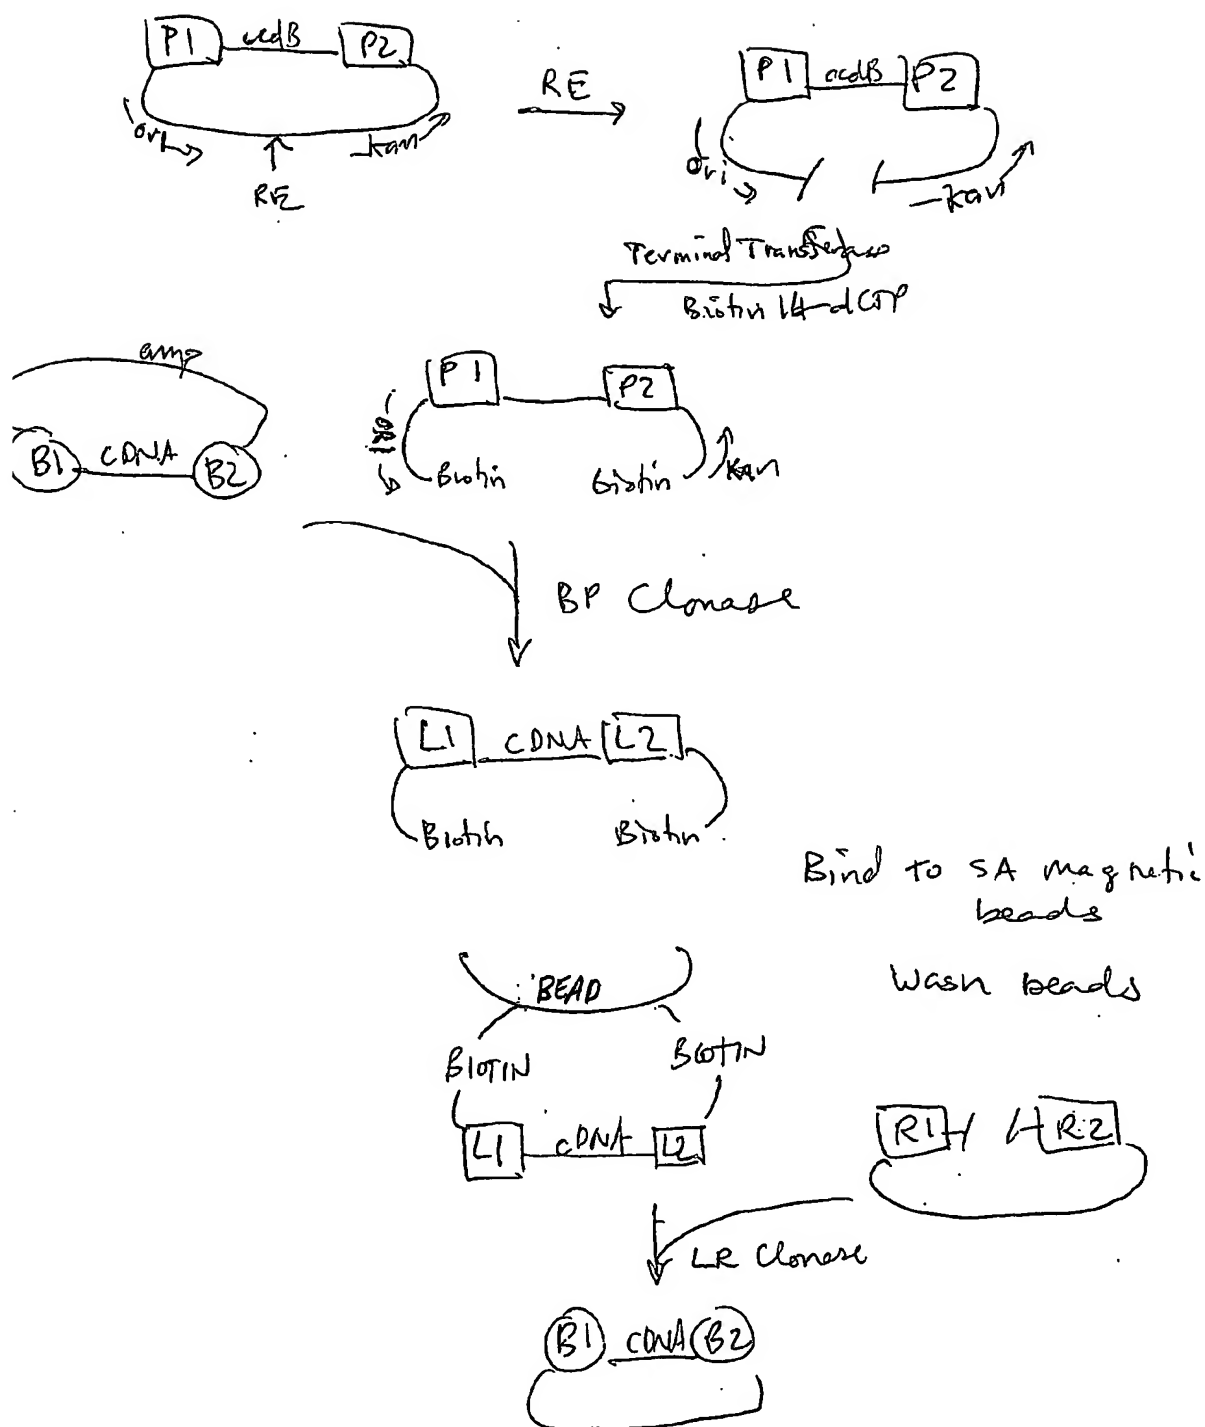 P1 ccdB P2
ori
kan
RE
RE
P1 ccdB P2
ori
kan
Terminal Transferase
Biotin 14-dCTP
amp
B1 cDNA B2
P1 P2
ori
Biotin
Biotin
Kan
BP Clonase
L1 cDNA L2
Biotin
Biotin
Bind to SA magnetic
beads
Wash beads
BEAD
BIOTIN
BIOTIN
L1 cDNA L2
R1 R2
LR Clonase
B1 cDNA B2